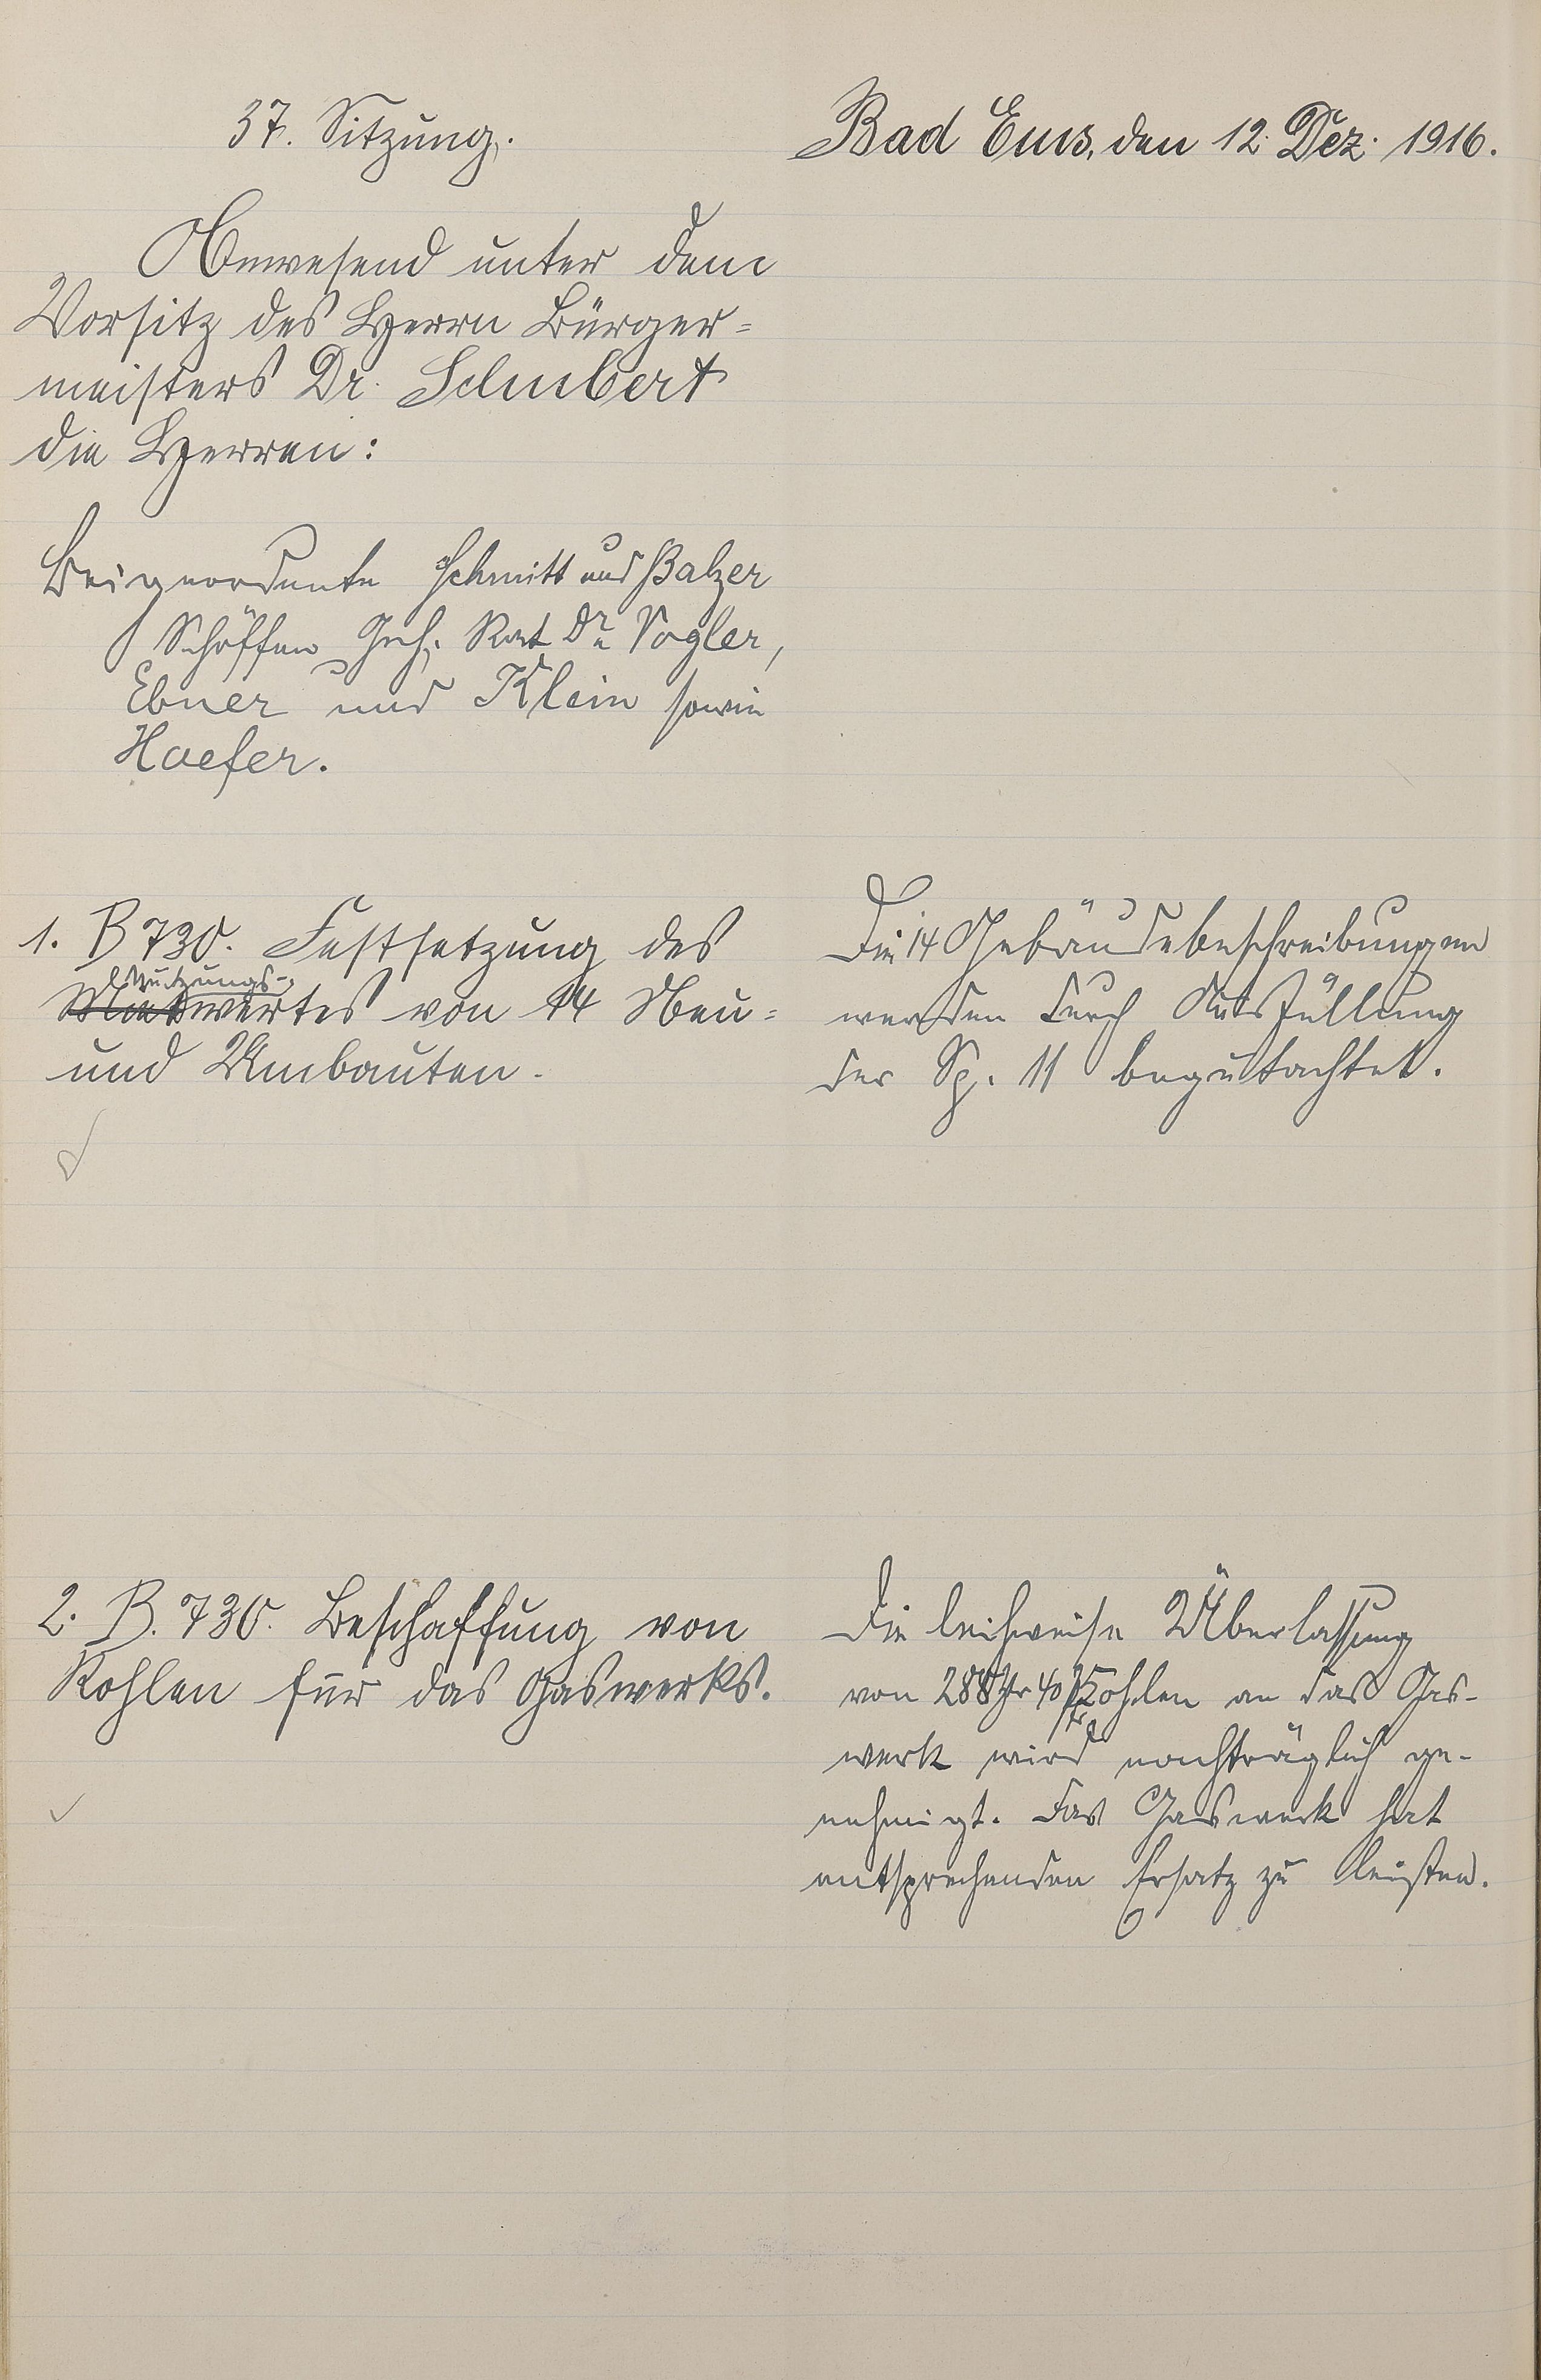 37. Sitzung.
Bad Ems, den 12. Dez. 1916.
Anwesend unter dem
Vorsitz des Herrn Bürger=
meisters Dr. Schubert
die Herren:
Beigeordnete Schmitt und Balzer
Schöffen Geh. Rat Dr. Vogler,
Ebner und Klein sowie
Haefer.
1. B 730. Festsetzung des
Nutzungs-
wertes von 14 Neu=
und Umbauten.
Die 14 Gebäudebeschreibungen
werden durch Ausfüllung
der Sp. 11 begutachtet.
2. B. 730. Beschaffung von
Kohlen für das Gaswerks.
Die leihweise Überlassung
von 288 Ztr 40 Kohlen an das Gas-
werk wird nachträglich ge-
nehmigt. Das Gaswerk hat
entsprechenden Ersatz zu leisten.